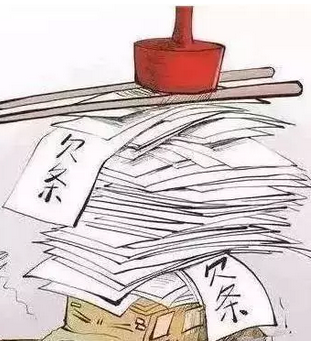 欠条
欠条